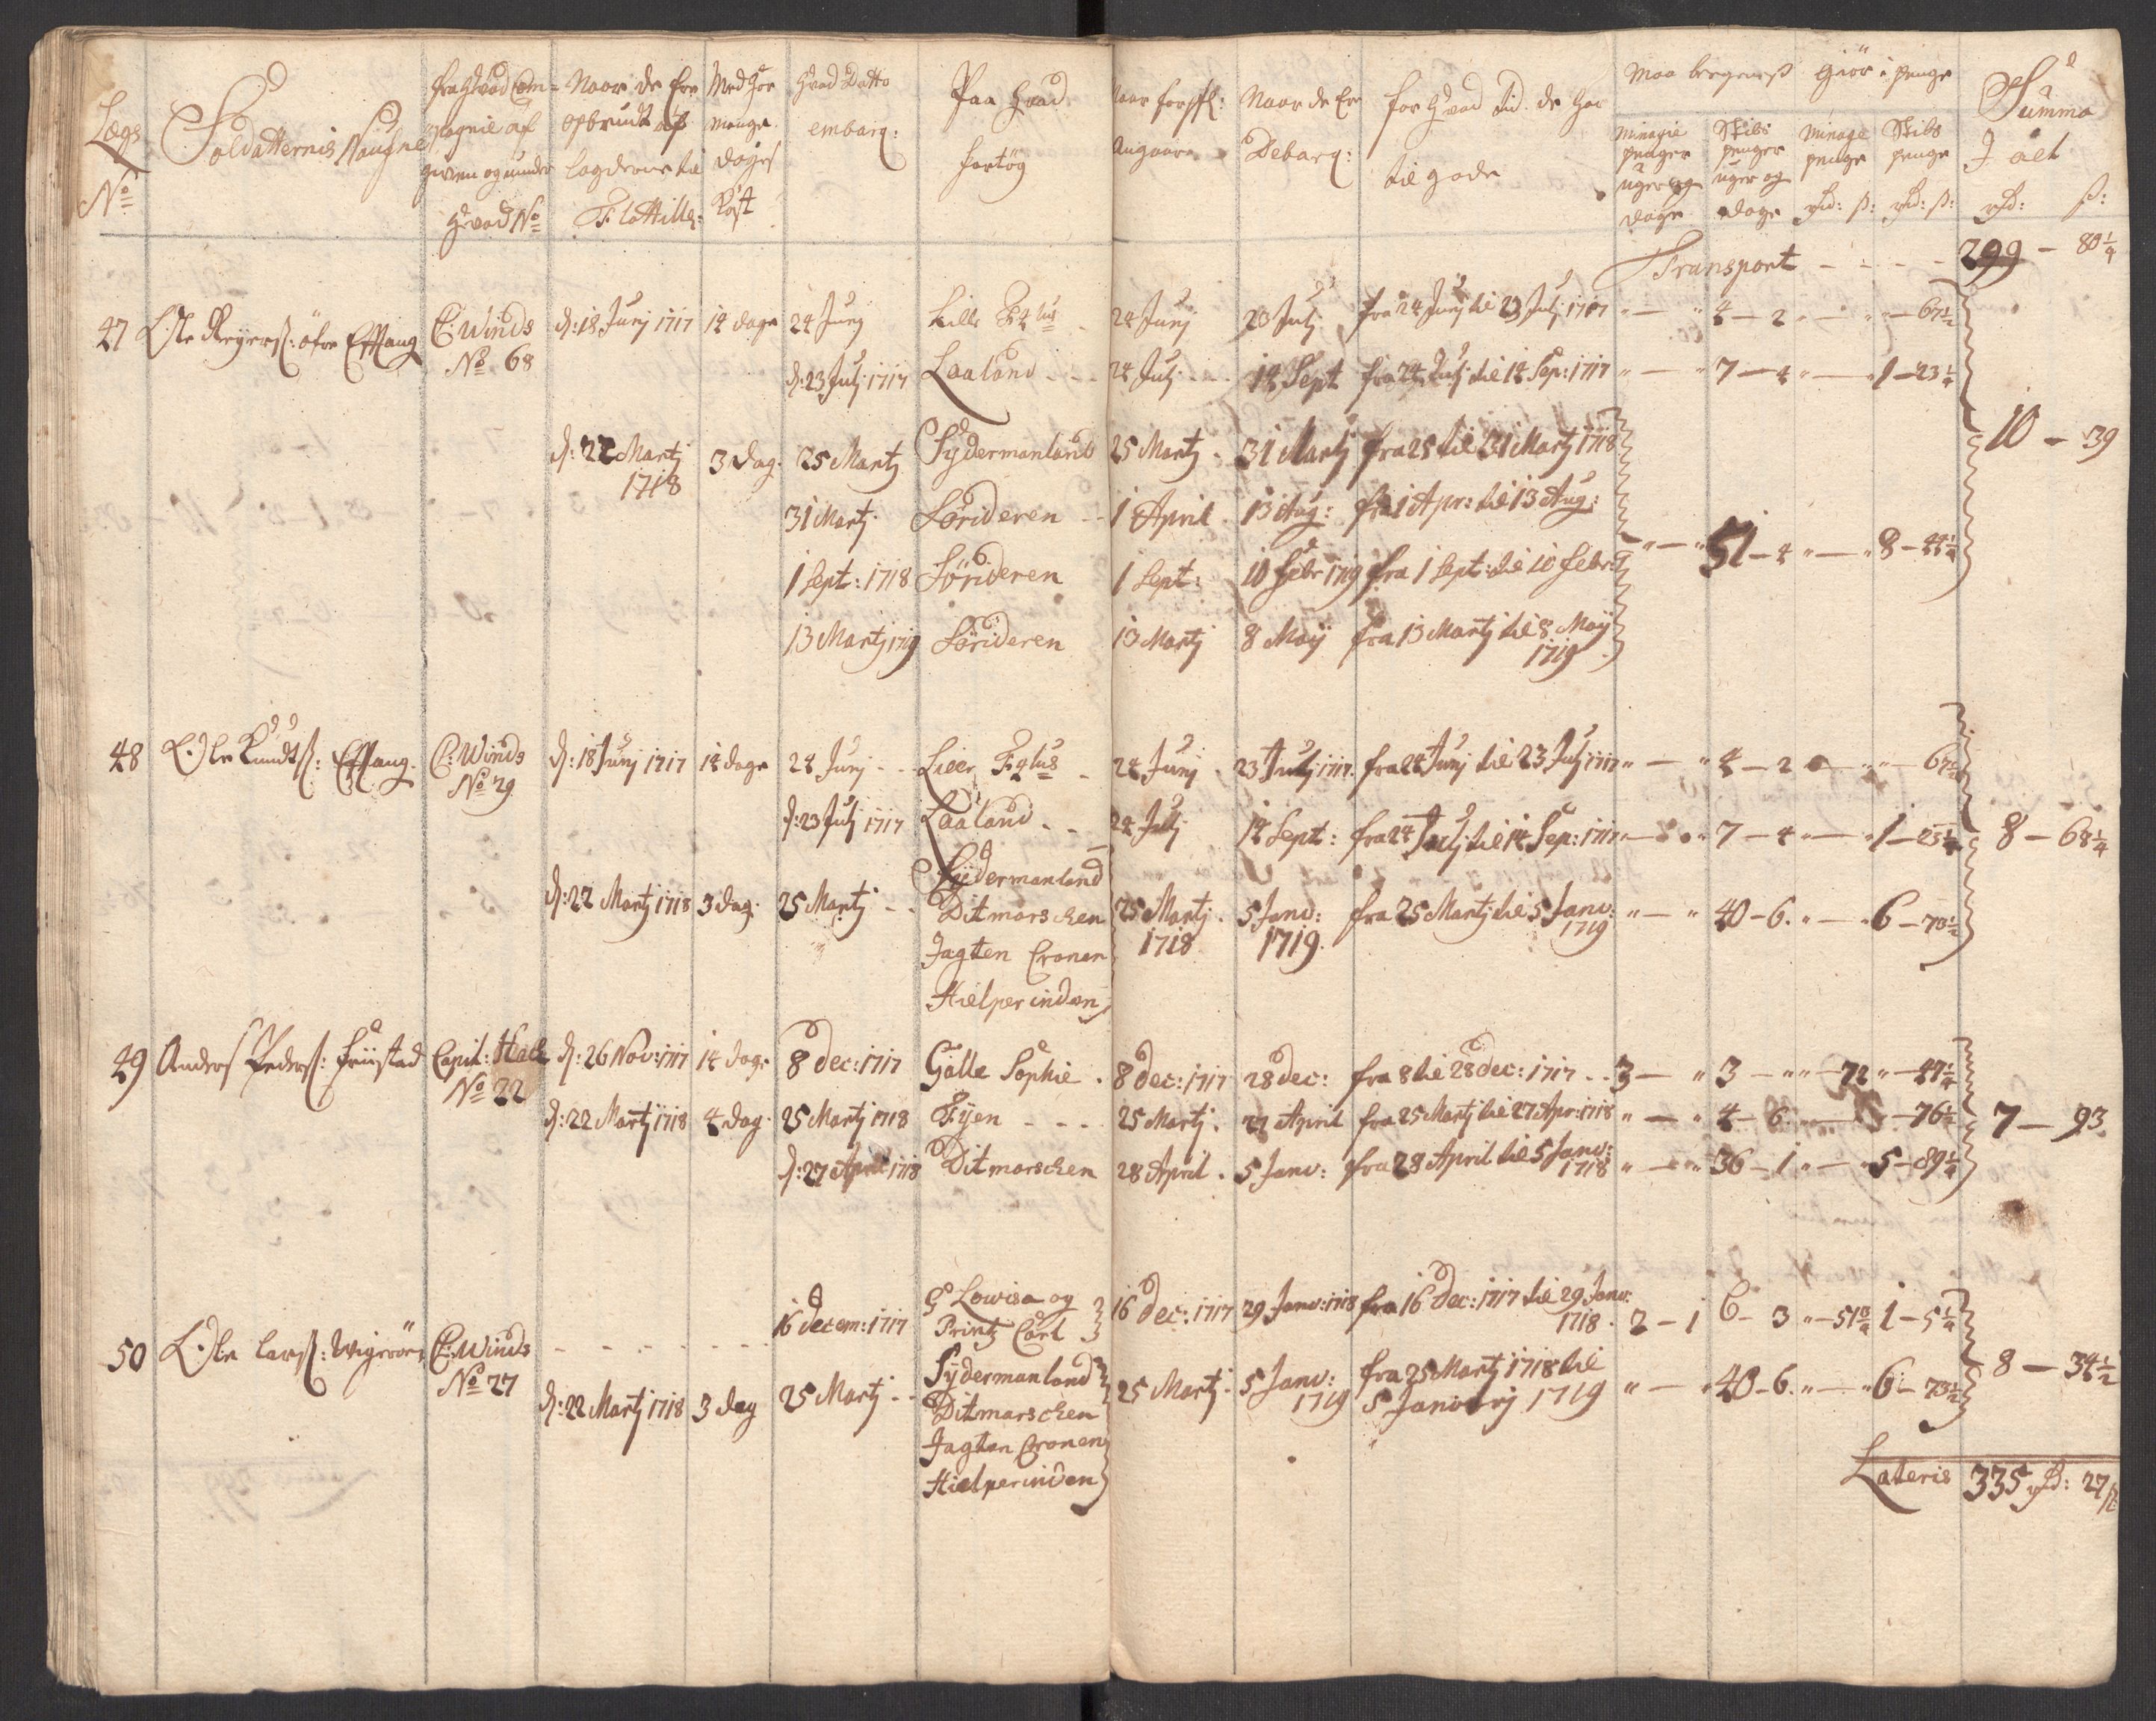 Lægs No
Soldatternis Naufne
fra Hvad Compagnie af given og under Hvad No
Naar de Ere opbrudt af lagderne til Flottill:
Med Hor mange dages Kost
Hvad Datto embarq:
Paa Hvad fartøg
Naar forpfl: Angaar
Naar de Er Debarq:
for Hvad tid de Har til gode
Maa beregnes
Giør i penge
Minagie penger uger og dage
Skibs penger uger og dage
Minage penge rd: s:
Skibs penge rd: s:
Summa I alt rd: s:
Transport - - - - 299 - 80 1/4
47 Ole Reyers: øfre Effang C: Winds No 68 d: 18 Junj 1717 14 dage 24 Junj Lille 24 Junj 23 Julj fra 24 Junj til 23 Julj 1717 " — " 4 — 2 " — " " — 67 1/2
d: 23 Julj 1717 Laaland - - - 24 Julj - - 14 Sept fra 24 Julj til 14 Sep: 1717 " — " 7 — 4 " — " 1 — 23 1/4
d: 22 Martj 1718 3 dag. 25 Martj Sydermanland 25 Martj - 31 Martj fra 25 til 31 Martj 1718
10 — 39
31 Martj. Sørideren - - 1 April. 13 Aug: fra 1 Apr: til 13 Aug:
" — " 51 — 4 " — " 8 — 44 1/4
1 Sept: 1718 Sørideren 1 Sept: 10 Febr 1719 fra 1 Sept: til 10 febr:
13 Martj 1719 Sørideren 13 Martj 8 Maij fra 13 Martj til 8 Maij 1719
48 Ole Knuds: Effang. C: Winds No 29 d: 18 Junj 1717 14 dage 24 Junj - - 24 Junj 23 Julj 1717. fra 24 Junj til 23 Julj 1717 " — " 4 — 2 " — " " — 67 1/2
d: 23 Julj 1717 Laaland - - 24 Julj 14 Sept: fra 24 Julj til 14 Sep: 1717 " — " 7 — 4 " — " 1 — 23 1/4
8 — 68 1/4
d: 22 Martj 1718 3 dag. 25 Martj - - Sydermanland Ditmarschen Jagten Cronen Hielperinden 25 Martj. 1718 5 Janv: 1719. fra 25 Martj til 5 Janv: 1719 " — " 40 — 6. " — " 6 — 73 1/2
49 Anders Peders: friistad Capit: No 22 d: 26 Nov: 1717 14 dage 8 dec: 1717 Galle Sophie. 8 dec: 1717 28 dec: fra 8 til 28 dec: 1717 - - 3 — " 3 — " " — 72 " — 47 1/4
d: 22 Martj 1718 4 dag. 25 Martj 1718 Fyen - - - 25 Martj. 27 April fra 25 Martj til 27 Apr: 1718 " — " 4 — 6 — 76 1/2
7 — 93
d: 27 April 1718 Ditmarschen 28 April. 5 Janv: fra 28 April til 5 Janv: 1718 " — " 36 — 1 " — " 5 — 89 1/4
50 Ole Lars: Wigerøen C: Winds No 27 - - - - - - - 16 Decem: 1717 Lovisa og Printz Carl 16 dec: 1717 29 Janv: 1718 fra 16 dec: 1717 til 29 Janv: 1718. 2 — 1 6 — 3 " — 51 3/4 1 — 5 1/4
8 — 34 1/2
d: 22 Martj 1718 3 dag 25 Martj - - Sydermanland Ditmarschen Jagten Cronen Hielperinden 25 Martj. 5 Janv: 1719 fra 25 Martj 1718 til 5 Janvarij 1719 " — " 40 — 6. " — " 6 — 73 1/2
Lateris 335 rd: 27 s